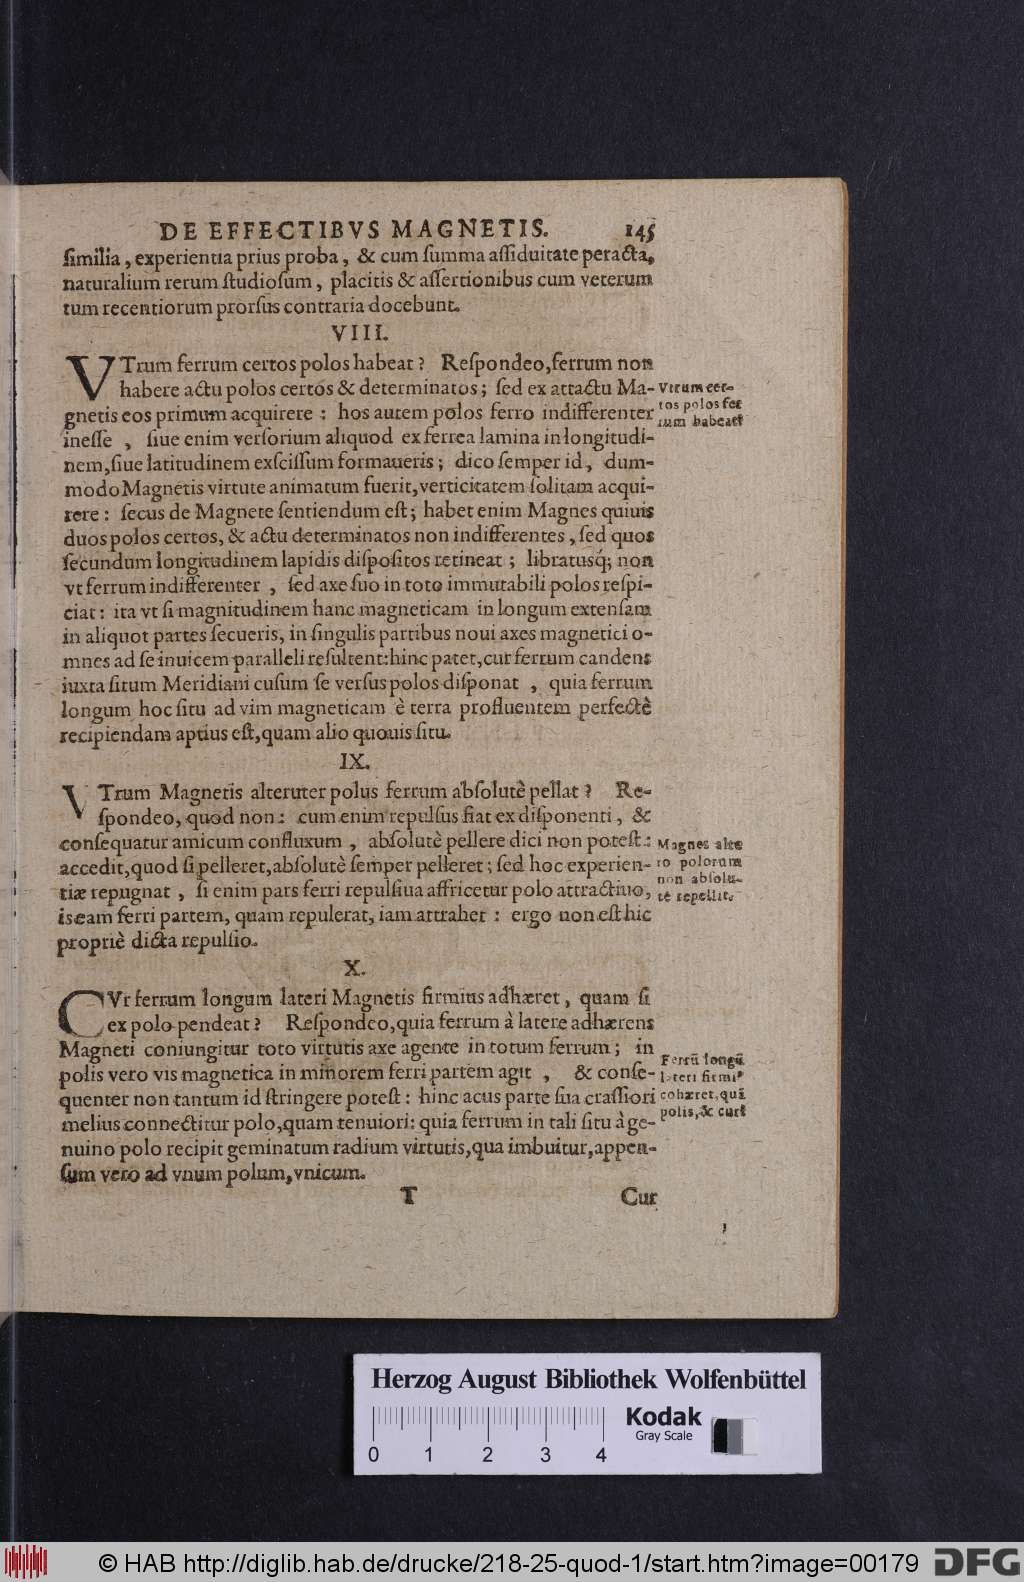 DE EFFECTIBVS MAGNETIS. 145
ſimilia, experientia prius proba, & cum ſumma aſſiduitate peracta,
naturalium rerum ſtudioſum, placitis & aſſertionibus cum veterum
tum recentiorum prorſus contraria docebunt.
VIII.
VTrum ferrum certos polos habeat? Reſpondeo, ferrum non
habere actu polos certos & determinatos; ſed ex attactu Ma-
gnetis eos primum acquirere: hos autem polos ferro indifferenter
ineſſe, ſiue enim verſorium aliquod ex ferrea lamina in longitudi-
nem, ſiue latitudinem exſciſſum formaueris; dico ſemper id, dum-
modo Magnetis virtute animatum fuerit, verticitatem ſolitam acqui-
rere: ſecus de Magnete ſentiendum eſt; habet enim Magnes quiuis
duos polos certos, & actu determinatos non indifferentes, ſed quos
ſecundum longitudinem lapidis diſpoſitos retineat; libratusq́; non
vt ferrum indifferenter, ſed axe ſuo in toto immutabili polos reſpi-
ciat: ita vt ſi magnitudinem hanc magneticam in longum extenſam
in aliquot partes ſecueris, in ſingulis partibus noui axes magnetici o-
mnes ad ſe inuicem paralleli reſultent: hinc patet, cur ferrum candens
iuxta ſitum Meridiani cuſum ſe verſus polos diſponat, quia ferrum
longum hoc ſitu ad vim magneticam è terra profluentem perfectè
recipiendam aptius eſt, quam alio quouis ſitu.
Vtrum cer-
tos polos fer
rum habeat?
IX.
VTrum Magnetis alteruter polus ferrum abſolutè pellat? Re-
ſpondeo, quod non: cum enim repulſus fiat ex diſponenti, &
conſequatur amicum confluxum, abſolutè pellere dici non poteſt:
accedit, quod ſi pelleret, abſolutè ſemper pelleret; ſed hoc experien-
tiæ repugnat, ſi enim pars ferri repulſiua affricetur polo attractiuo,
is eam ferri partem, quam repulerat, iam attrahet: ergo non eſt hic
propriè dicta repulſio.
Magnes alte
ro polorum
non abſolu-
tè repellit.
X.
CVr ferrum longum lateri Magnetis firmius adhæret, quam ſi
ex polo pendeat? Reſpondeo, quia ferrum à latere adhærens
Magneti coniungitur toto virtutis axe agente in totum ferrum; in
polis vero vis magnetica in minorem ferri partem agit, & conſe-
quenter non tantum id ſtringere poteſt: hinc acus parte ſua craſſiori
melius connectitur polo, quam tenuiori: quia ferrum in tali ſitu à ge-
nuino polo recipit geminatum radium virtutis, qua imbuitur, appen-
ſum vero ad vnum polum, vnicum.
Ferrū longū
lateri firmi9
cohæret, quā
polis, & cur?
T Cur
Herzog August Bibliothek Wolfenbüttel
Kodak
Gray Scale
0 1 2 3 4
© HAB http://diglib.hab.de/drucke/218-25-quod-1/start.htm?image=00179 DFG